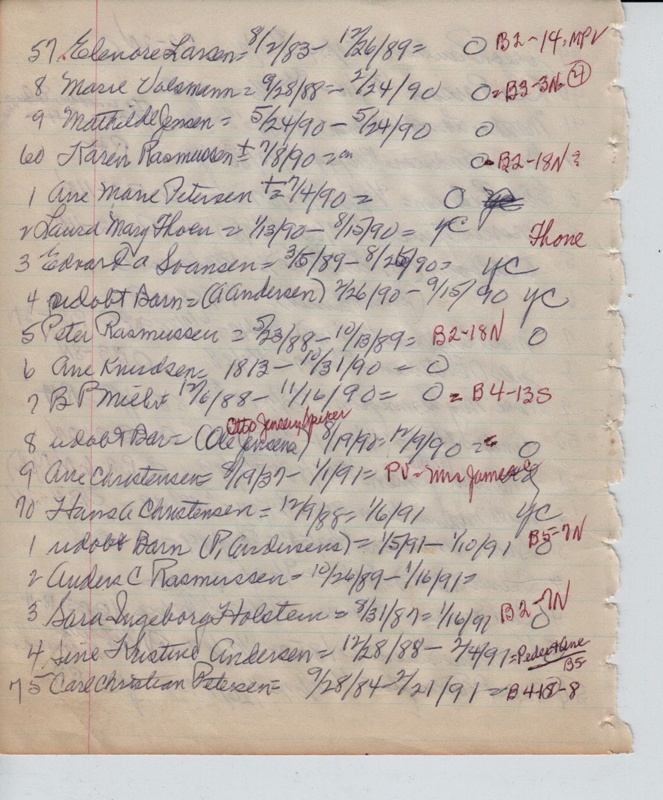 57. Elenore Larsen = 8/2/83 - 12/26/89 = O B2-14, MPV
8 Marie Volsmann = 9/28/88 - 2/24/90 O = B3-3N (4)
9 Mathilde Jensen = 5/24/90 - 5/24/90 O
60 Karen Rasmussen ± 7/8/90 = O - B2-18N ?
1 Ane Marie Petersen ± 7/4/90 = O
2 Laura Mary Thoen = 1/13/90 - 8/15/90 = YC Thone
3 Edvard A Svansen = 3/5/89 - 8/25/90 = YC
4 udobt Barn = (A Andersen) 7/26/90 - 9/15/90 YC
5 Peter Rasmussen = 5/23/88 - 10/13/89 = B2-18N O
6 Ane Knudsen = 1813 - 10/31/90 - O
7 B P 12/6/88 - 11/16/90 = O = B4-13S
Otto Jensen
8 udobt Bar = (Ole Jensens) 8/19/90 = 12/9/90 = O
9 Ane Christensen = 8/19/37 - 1/1/91 = PV - Mrs James
70 Hans A Christensen = 12/9/88 = 1/6/91 YC
1 udobt Barn (P. Andersens) = 1/5/91 - 1/10/91 B5-7N
2 Anders C Rasmussen = 10/26/89 - 1/16/91 =
3 Sara Ingeborg Holstein = 8/31/87 = 1/16/91 B2-7N O
4 Sine Kristine Andersen = 12/28/88 - 2/4/91 = Peder + Ane B5
75 Carl Christian Petersen = 9/28/84 - 2/21/91 = B4